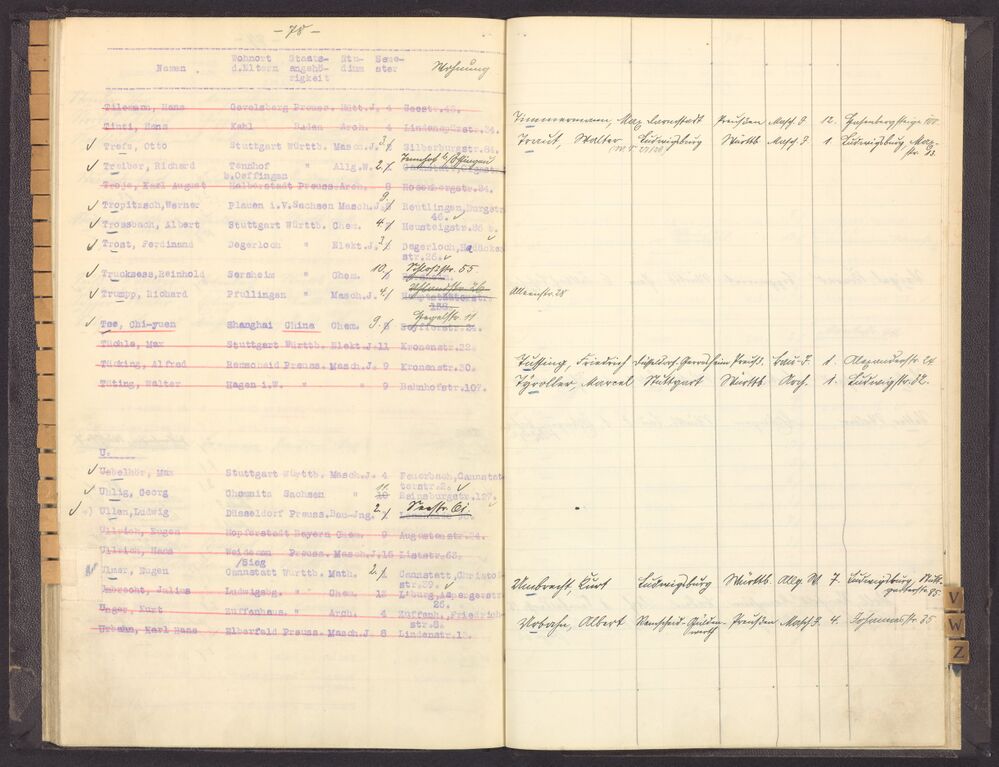 - 78 -
Namen Wohnort d.Eltern Staats-angehö-rigkeit Stu-dium Seme-ster Wohnung
Tilemann, Hans Gevelsberg Preuss. Hütt. J. 4 Seestr.
Tinti, Hans Kehl Baden Arch. 4
Trefz, Otto Stuttgart Württb. Masch.J. Silberburgstr.
Treiber, Richard Tennhof " Allg.W. 2.
b.Oeffingen
Troje, Karl August Halberstadt Preuss. Arch. 8 Rosenbergstr.
Tropitzsch,Werner Plauen i.V. Sachsen Masch.J. 9. Reutlingen,Burgstr.
46.
Trossbach, Albert Stuttgart Württb. Chem. 4. Heusteigstr.
Trost, Ferdinand Degerloch " Elekt.J. 3. Degerloch,
str.26.
Schloßstr. 55.
Truckness,Reinhold Sersheim " Chem. 10.
Trumpp, Richard Pfullingen " Masch.J. 4. Hauptstätterstr.
Hegelstr. 11
Tse, Chi-yuen Shanghai China Chem. 9.
Tüchle, Max Stuttgart Württb. Elekt.J. 11 Kronenstr.
Tücking, Alfred Remscheid Preuss. Masch.J. 9 Kronenstr.
Tüting, Walter Hagen i.W. " " 9 Bahnhofstr.107.
U.
Uebelhör, Max Stuttgart Württb. Masch.J. 4 Feuerbach,Cannstat
terstr.2.
Uhlig, Georg Chemnitz Sachsen " 11. 10 Reinsburgstr.
Ullen,Ludwig Düsseldorf Preuss. Bau-Ing. 2. Seestr.
Ullrich, Eugen Hopferstadt Bayern Chem. 9 Augustenstr.
Ullrich, Hans Weidenau Preuss. Masch.J. 15 Liststr.
/Sieg
Ulmer, Eugen Cannstatt Württb. Math. 2. Cannstatt,
Umbrecht, Julius Ludwigsbg. " Chem. 12 Lburg,Aspergerstr
26.
Unger, Kurt Zuffenhaus. " Arch. 4 Zuffenh.,Friedrich-
str.8.
Urbahn, Karl Hans Elberfeld Preuss. Masch.J. 8 Lindenstr.
Timmermann, Max Darmstadt Preußen Masch. J. 12. Hasenbergsteige
Traut, Walter Ludwigsburg Württb. Masch. J. 1. Ludwigsburg,
Alleenstr. 28
Tüssing, Friedrich Düsseldorf-Gerresheim Preuß. Bau-J. 1. Alexanderstr. 24
Tyroller, Marcel Stuttgart Württb. Arch. 1. Ludwigstr. 82.
Umbrecht, Kurt Ludwigsburg Württb. Allg. W. 7. Ludwigsburg, Stutt-
garterstr. 75.
Urbahn, Albert Remscheid- Preußen Masch. J. 4. Johannesstr. 35
V
W
Z